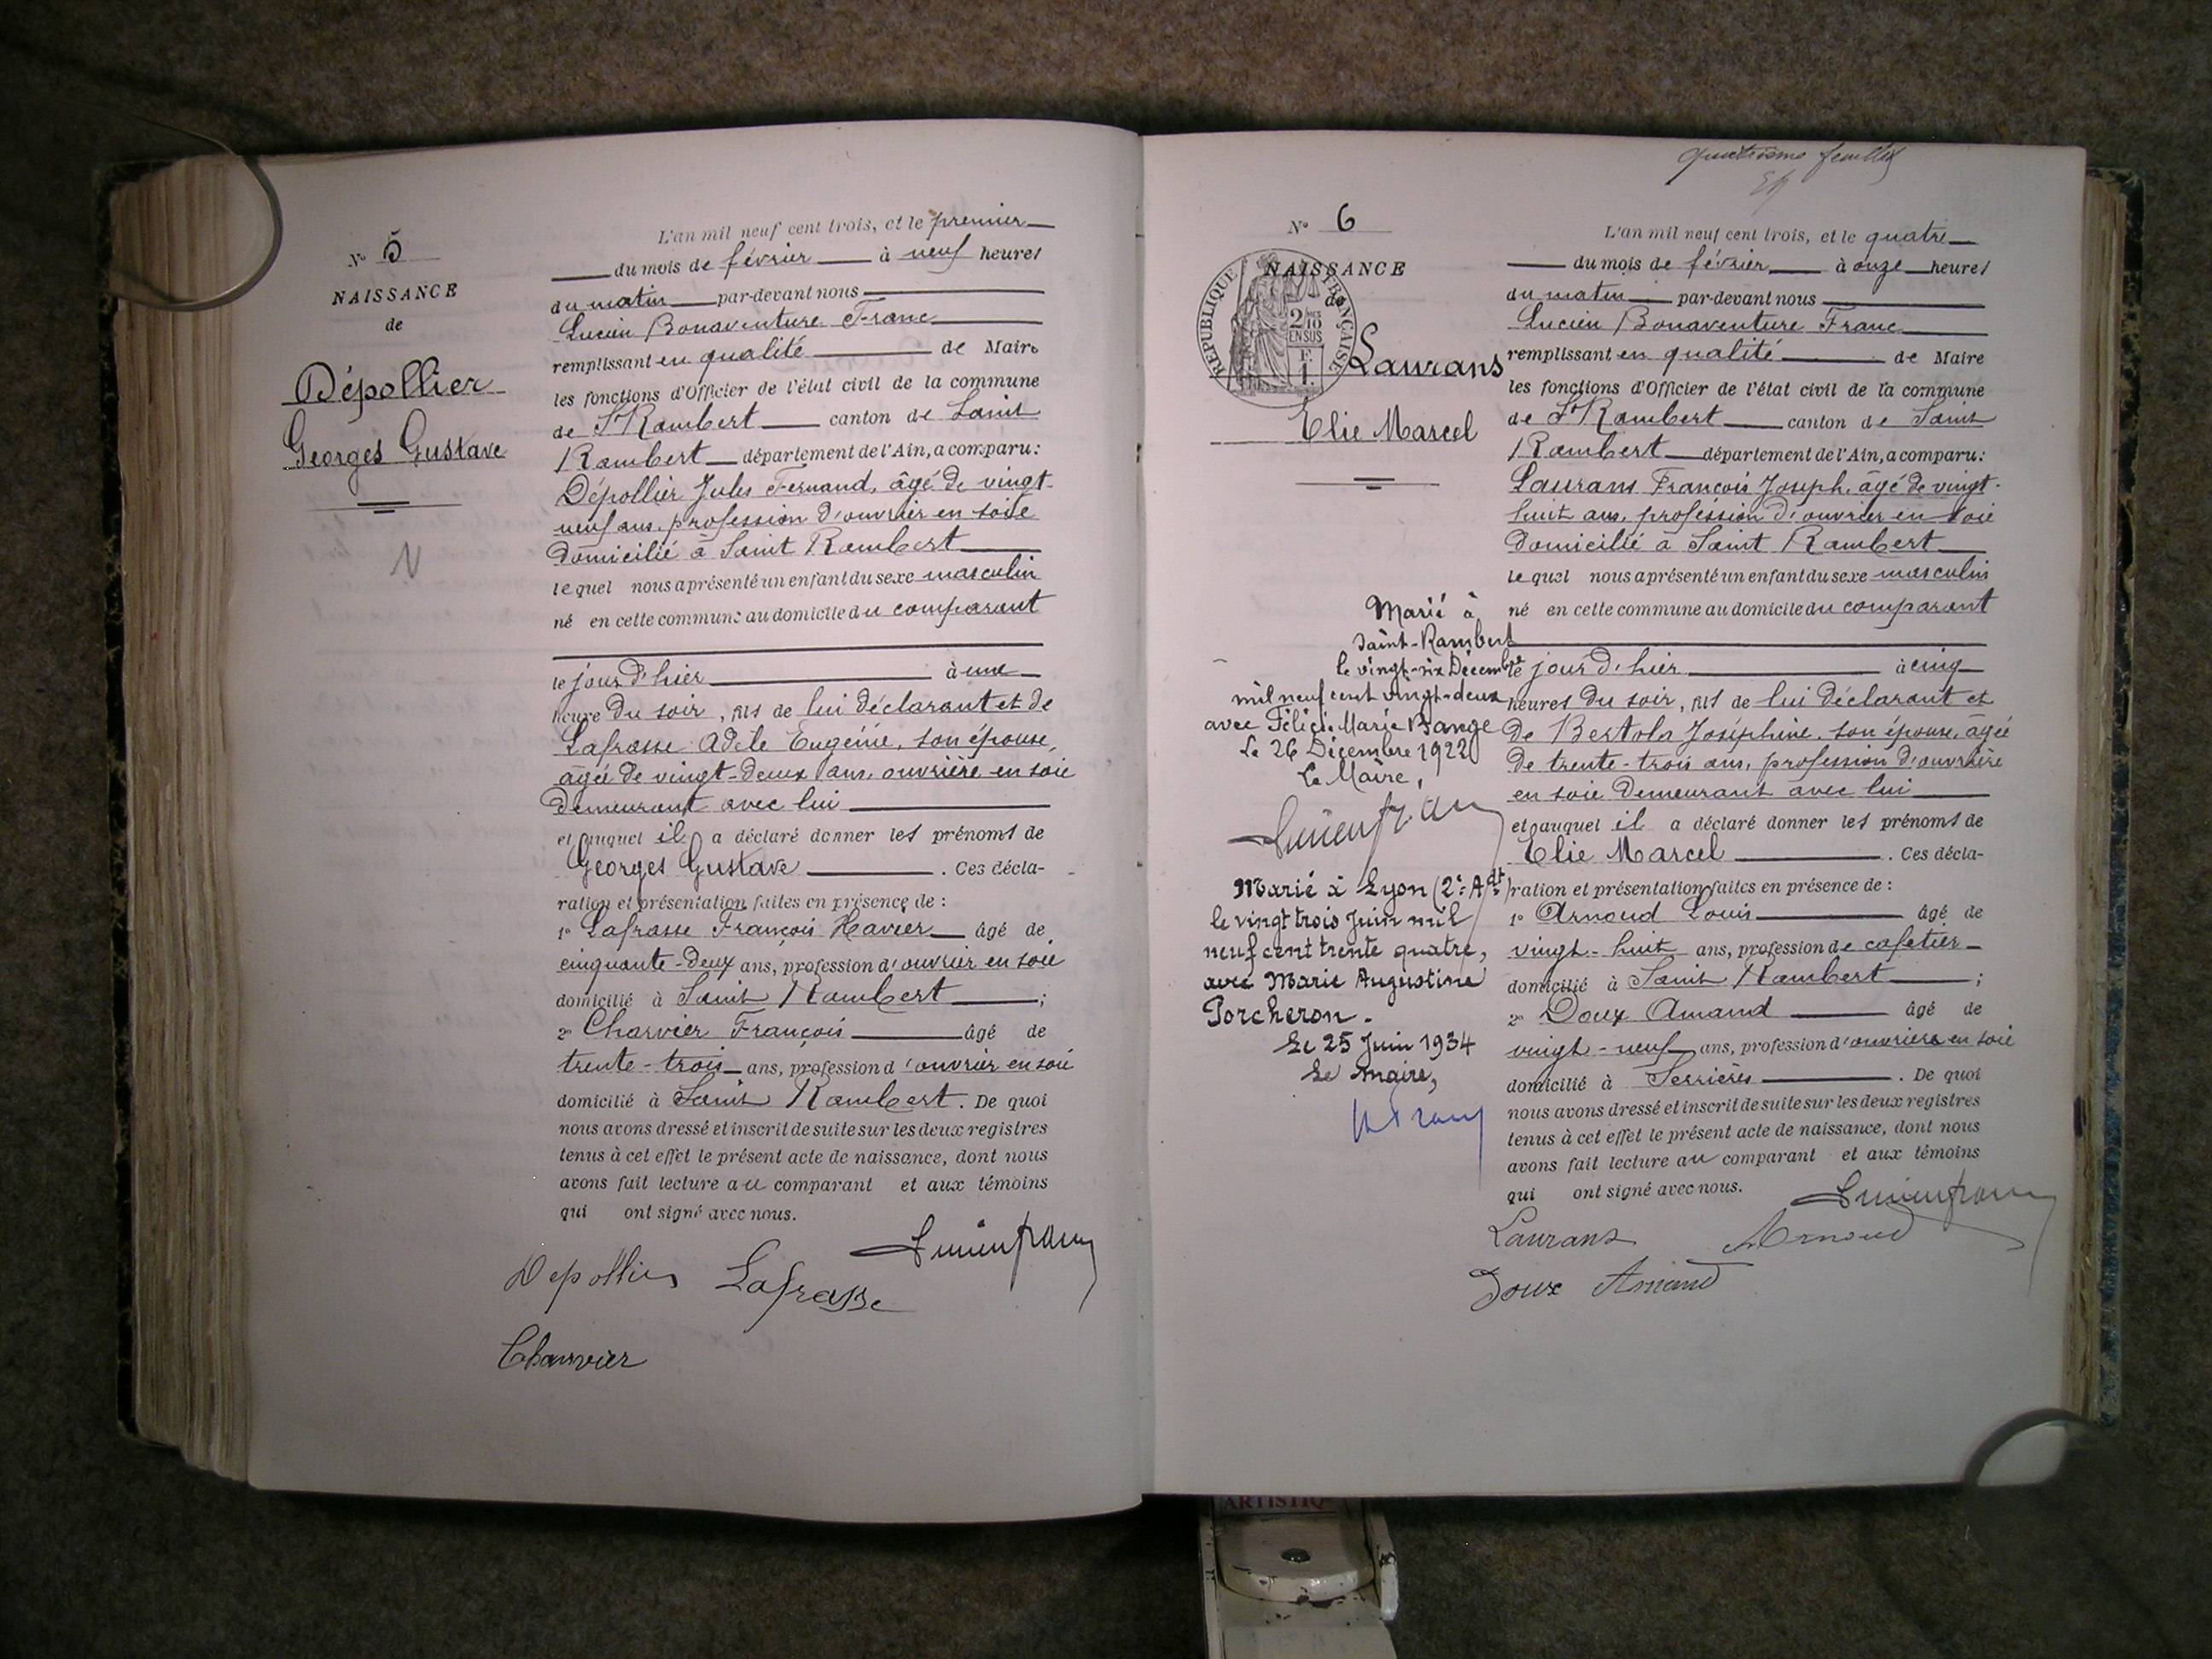 N° 5
NAISSANCE
de
Dépollier
Georges Gustave
N
L'an mil neuf cent trois, et le premier
du mois de février à neuf heures
du matin par-devant nous
Lucien Bonaventure Franc
remplissant en qualité de Maire
les fonctions d'Officier de l'état civil de la commune
de St Rambert canton de Saint
Rambert département de l'Ain, a comparu:
Dépollier Jules Fernand, âgé de vingt-
neuf ans, profession d'ouvrier en soie
domicilié à Saint Rambert
lequel nous a présenté un enfant du sexe masculin
né en cette commune au domicile du comparant
le jour d'hier à une
heure du soir, fils de lui déclarant et de
Lafrasse Adèle Eugénie, son épouse,
âgée de vingt-deux ans, ouvrière en soie
demeurant avec lui
et auquel il a déclaré donner les prénoms de
Georges Gustave. Ces décla-
ration et présentation faites en présence de :
1° Lafrasse François Xavier âgé de
cinquante-deux ans, profession d'ouvrier en soie
domicilié à Saint Rambert ;
2° Charvier François âgé de
trente-trois ans, profession d'ouvrier en soie
domicilié à Saint Rambert. De quoi
nous avons dressé et inscrit de suite sur les deux registres
tenus à cet effet le présent acte de naissance, dont nous
avons fait lecture au comparant et aux témoins
qui ont signé avec nous.
Lucien Franc
Depollier Lafrasse
Charvier
quatrième feuillet
N° 6
NAISSANCE
de
REPUBLIQUE FRANÇAISE
2/10 MES
EN SUS
1 F.
Laurans
Elie Marcel
Marié à
Saint-Rambert
le vingt-six Décembre
mil neuf cent vingt-deux
avec Félicie Marie Bange
Le 26 Décembre 1922
Le Maire,
Lucien Franc
Marié à Lyon (2e Ardt)
le vingt trois Juin mil
neuf cent trente quatre,
avec Marie Augustine
Porcheron.
Le 25 Juin 1934
Le maire,
L'an mil neuf cent trois, et le quatre
du mois de février à onze heures
du matin par-devant nous
Lucien Bonaventure Franc
remplissant en qualité de Maire
les fonctions d'Officier de l'état civil de la commune
de St Rambert canton de Saint
Rambert département de l'Ain, a comparu:
Laurans François Joseph, âgé de vingt-
huit ans, profession d'ouvrier en soie
domicilié à Saint Rambert
lequel nous a présenté un enfant du sexe masculin
né en cette commune au domicile du comparant
le jour d'hier à cinq
heures du soir, fils de lui déclarant et
de Bertola Joséphine, son épouse, âgée
de trente-trois ans, profession d'ouvrière
en soie demeurant avec lui
et auquel il a déclaré donner les prénoms de
Elie Marcel. Ces décla-
ration et présentation faites en présence de :
1° Arnoud Louis âgé de
vingt-huit ans, profession de cafetier
domicilié à Saint Rambert ;
2° Doux Amand âgé de
vingt-neuf ans, profession d'ouvrière en soie
domicilié à Serrières. De quoi
nous avons dressé et inscrit de suite sur les deux registres
tenus à cet effet le présent acte de naissance, dont nous
avons fait lecture au comparant et aux témoins
qui ont signé avec nous.
Lucien Franc
Laurans Arnoud
Doux Amand
ARTISTIQ